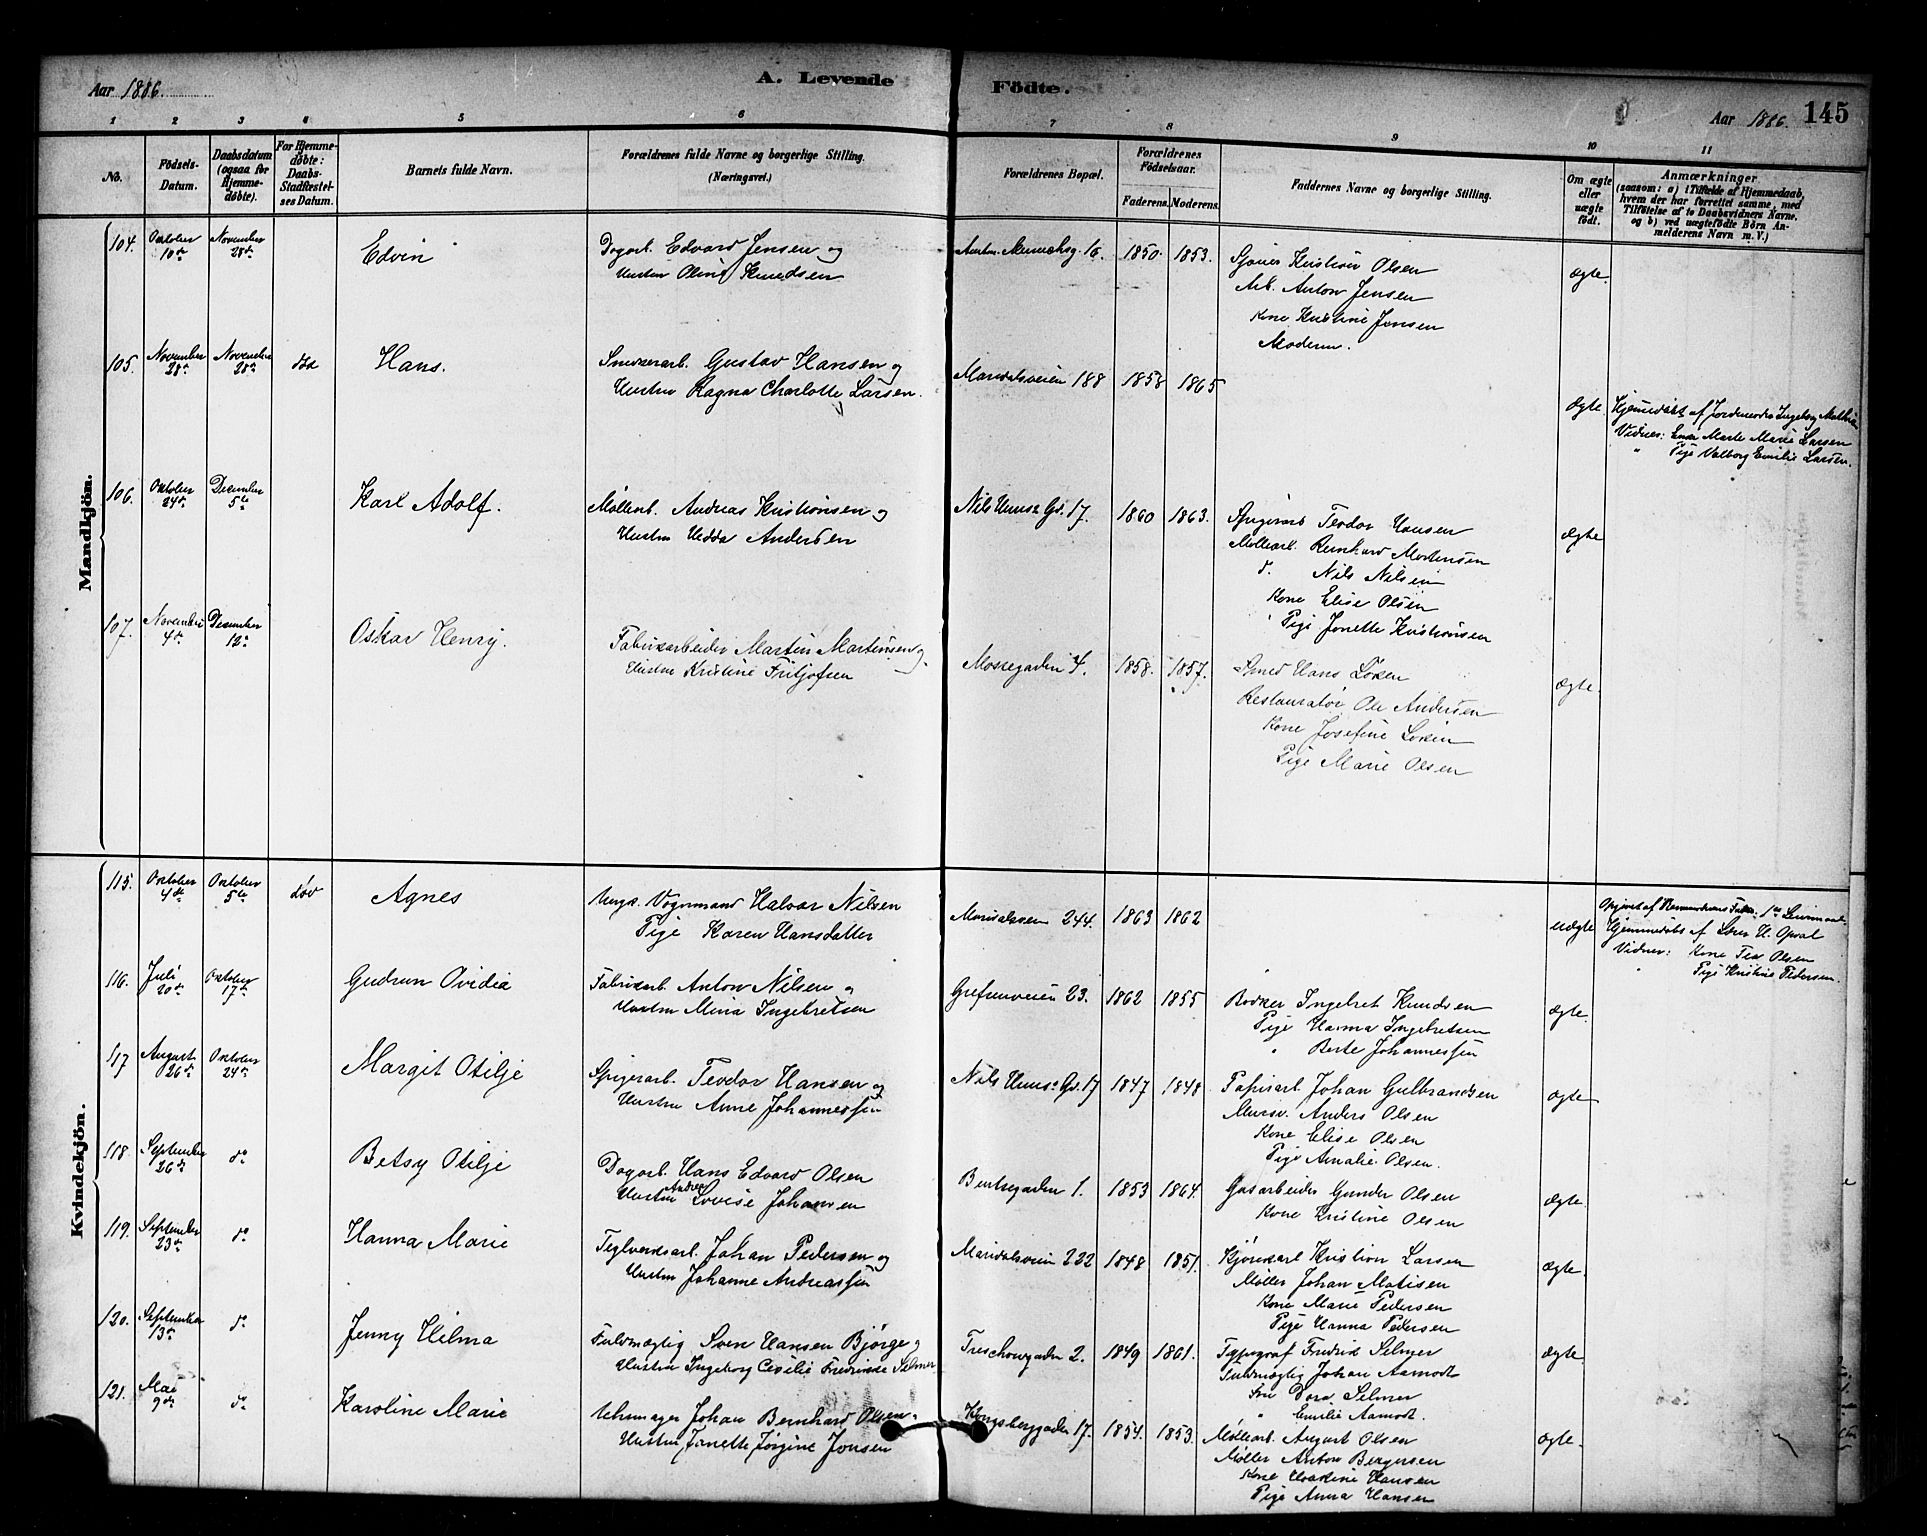 Aar 1886.
A. Levende
Födte.
Aar 1886.
145
1 2 3 4 5 6 7 8 9 10 11
No.
Födsels-
Datum.
Daabsdatum
(ogsaa for
Hjemme-
döbte).
For Hjemme-
döbte:
Daabs-
Stadfæstel-
ses Datum.
Barnets fulde Navn.
Forældrenes fulde Navne og borgerlige Stilling.
(Næringsvei.)
Forældrenes Bopæl.
Forældrenes
Födselsaar.
Faderens. Moderens.
Faddernes Navne og borgerlige Stilling.
Om ægte
eller
uægte
födt.
Anmærkninger
(saasom: a) i Tilfælde af Hjemmedaab,
hvem der har forrettet samme, med
Tilföielse af to Daabsvidners Navne,
og b) ved uægtefödte Börn An-
melderens Navn m. V.)
Mandkjön.
104. Oktober 10de November 28de Edvin
Dagarb. Edvard Jensen og
Hustru Oline Knudsen
Anton 16. 1850. 1853.
Sjauer Kristian Olsen
Arb. Anton Jensen
Kone Kristine Jensen
Moderen.
ægte.
105. November 28de November 28de død Hans.
Snedkerarb. Gustav Hansen og
Hustru Ragna Charlotte Larsen.
Maridalsveien 188 1858 1865
ægte.
Hjemmedøbt af Jordemoder Ingeborg
Vidner: Marte Marie Larsen
" Pige Valborg Emilie Larsen.
106. Oktober 24de December 5te Karl Adolf.
Møllearb. Andreas Kristiansen og
Hustru Hedda Andersen
Nils Huus's Gd. 17. 1860 1863.
Spigerarb Teodor Hansen
Møllearb. Bernhard Mortensen
d. Nils Nilsen
Kone Elise Olsen
Pige Jonette Kristiansen
ægte
107. November 4de December 12te Oskar Henry.
Fabrikarbeider Martin Martinsen og
Hustru Kristine Fritjofsen
Mossegaden 4. 1858. 1857.
Smed Hans Løken
Restauratør Ole Andersen
Kone Josefine Løken
Pige Marie Olsen
ægte.
Kvindekjön.
115. Oktober 4de Oktober 5te død Agnes
Ungk. Vognmand Halvor Nilsen
Pige Karen Hansdatter
Maridalsveien 244. 1863 1862
uægte
Opgivet af Barnefaderen
Hjemmedøbt af Søren H. Opsal
Vidner: Kone Olsen
" Pige Kristine Pedersen.
116. Juli 20de Oktober 17de Gudrun Ovidia
Fabrikarb. Anton Nilsen og
Hustru Mina Ingebretsen
Grefsenveien 23. 1862 1855
Bødker Ingebret Knudsen
Pige Hanna Ingebretsen
" Berte Johannessen
ægte.
117 August 26de Oktober 24de Margit Otilje
Spigerarb. Teodor Hansen og
Hustru Anne Johannessen
Nils Huus's Gd. 17 1847 1848
Papirarb. Johan Gulbrandsen
Mursv. Anders Olsen
Kone Elise Olsen
Pige Amalie Olsen.
ægte
118. September 26de do Betsy Otilje
Dagarb. Hans Edvard Olsen
Andrea
Hustru Lovise Johansen
Bentsegaden 1. 1853 1864.
Gasarbeider Gunder Olsen
Kone Kristine Olsen
ægte.
119. September 23de do Hanna Marie
Teglverksarb. Johan Pedersen og
Hustru Johanne Andreassen
Maridalsveien 222 1848 1851.
Kjørekarl Kristian Larsen
Møller Johan Matisen
Kone Marie Pedersen
Pige Hanna Pedersen
ægte.
120. September 13de do Jenny Hilma
Fuldmægtig Sven Hansen Bjørge og
Hustru Ingeborg Cecilie Fredrikke Selmer
Treschowgaden 2. 1849 1861.
Typograf Fredrik Selmer
Fuldmægtig Johan Aamodt
Fru Dora Selmer
" Emilie Aamodt.
ægte.
121. Mai 9de do Karoline Marie
Uhrmager Johan Bernhard Olsen
Hustru Janette Jørgine Jonsen
Kongsberggaden 17. 1854. 1853.
Møllearb. August Olsen
Møller Anton Bergersen
Kone Hansen
Pige Anna Hansen
ægte.